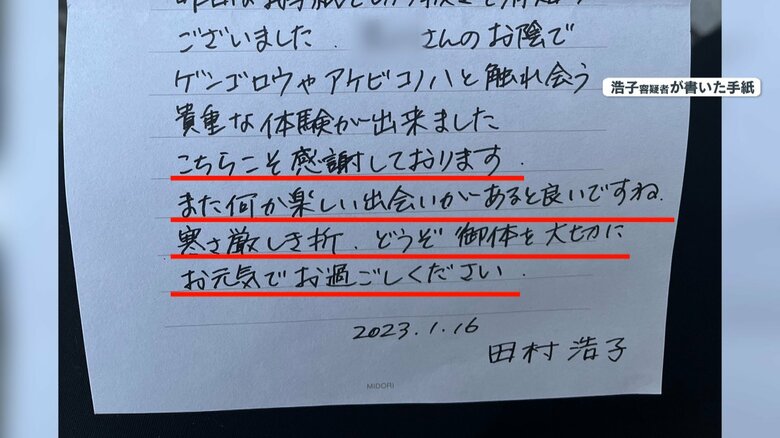 ございました. さんのお陰で
ゲンゴロウやアケビコノハと触れ合う
貴重な体験が出来ました
こちらこそ感謝しております.
また何か楽しい出会いがあると良いですね.
寒さ厳しき折.どうぞ御体を大切に
お元気でお過ごしください.
2023.1.16
田村浩子
MIDORI
浩子容疑者が書いた手紙